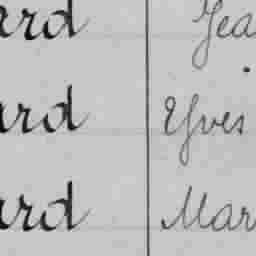 ard Jea
ard Yves
ard Mar